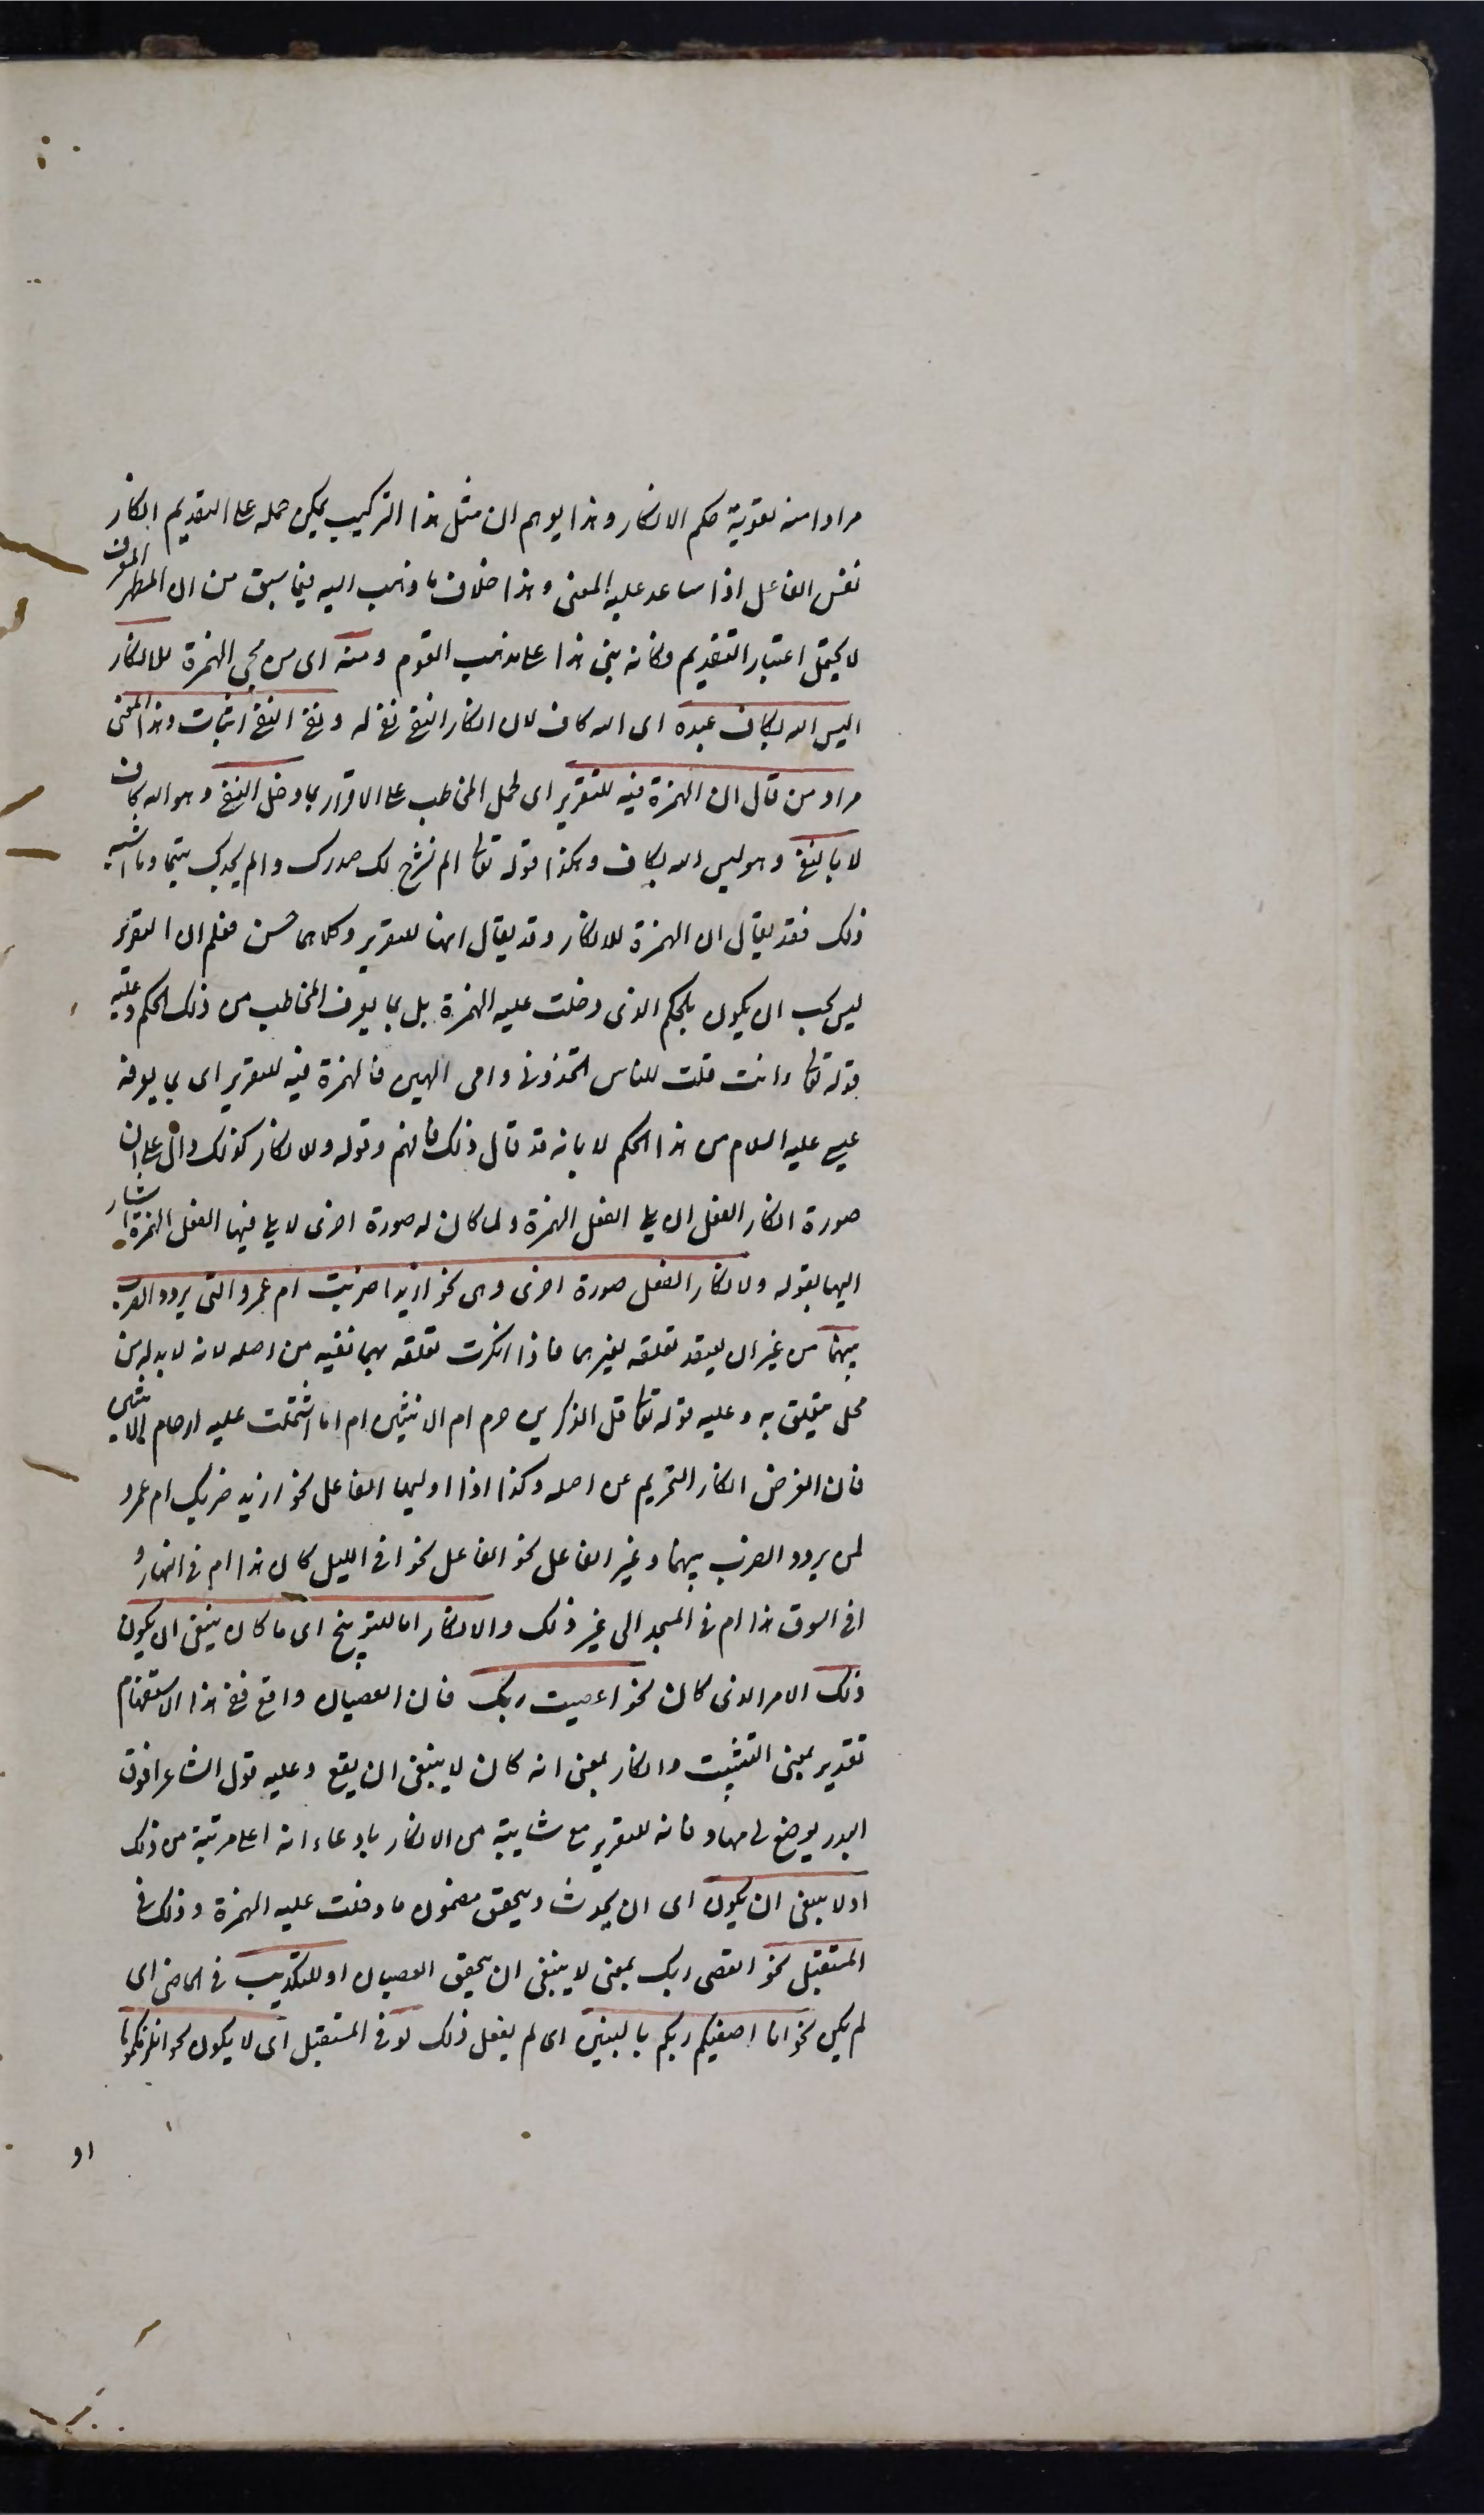 مرادا منه تقوية حكم الانكار وهذا يوهم ان مثل هذا التركيب يمكن حمله على التقديم انكار
نفس الفاعل اذا ساعد عليه المعنى وهذا خلاف ما ذهب اليه فيما سبق من ان المظهر المعرف
لا يحتمل اعتبار التقديم وكانه بنى هذا على مذهب القوم ومنه اى من مجى الهمزة للانكار
اليس الله بكاف عبده اى الله كاف لان انكار النفى نفى له ونفى النفى اثبات وهذا المعنى
مراد من قال ان الهمزة فيه للتقرير اى لحمل المخاطب على الاقرار بما دخل النفى وهو الله كاف
لا بالنفى وهو ليس الله بكاف وهكذا قوله تعالى الم نشرح لك صدرك والم يجدك يتيما وما اشبه
ذلك فقد يقال ان الهمزة للانكار وقد يقال انها للتقرير وكلاهما حسن فعلم ان التقرير
ليس يجب ان يكون بالحكم الذى دخلت عليه الهمزة بل بما يعرف المخاطب من ذلك الحكم وعليه
قوله تعالى وانت قلت للناس اتخذونى وامى الهين فالهمزة فيه للتقرير اى بما يعرفه
عيسى عليه السلام من هذا الحكم لا بانه قد قال ذلك فافهم وقوله والانكار كذلك دال على ان
صورة انكار الفعل ان يلى الفعل الهمزة ولما كان له صورة اخرى لا يلى فيها الفعل الهمزة اشار
اليها بقوله ولانكار الفعل صورة اخرى وهى نحو ازيدا ضربت ام عمروا لمن يردد الضرب
بينهما من غير ان يعتقد تعلقه بغيرهما فاذا انكرت تعلقه بهما نفيته من اصله لانه لا بد له من
محل يتعلق به وعليه قوله تعالى قل الذكرين حرم ام الانثيين ام اما اشتملت عليه ارحام الانثيين
فان الغرض انكار التحريم عن اصله وكذا اذا اوليها الفاعل نحو ازيد ضربك ام عمرو
لمن يردد الضرب بينهما وغير الفاعل نحو الفاعل نحو افى الليل كان هذا ام فى النهار و
افى السوق هذا ام فى المسجد الى غير ذلك والانكار اما للتوبيخ اى ما كان ينبغى ان يكون
ذلك الامر الذى كان نحو اعصيت ربك فان العصيان واقع ففى هذا الاستفهام
تقدير بمعنى التثبيت وانكار بمعنى انه كان لا ينبغى ان يقع وعليه قول الشاعر افوق
البدر يوضع لى مهاد فانه للتقرير مع شايبة من الانكار بادعاء انه اعلى مرتبة من ذلك
او لا ينبغى ان يكون اى ان يحدث ويتحقق مضمون ما دخلت عليه الهمزة وذلك فى
المستقبل نحو اتعصى ربك بمعنى لا ينبغى ان يتحقق العصيان او للتكذيب فى الماضى اى
لم يكن نحو افاصفيكم ربكم بالبنين اى لم يفعل ذلك او فى المستقبل اى لا يكون نحو انلزمكموها
او